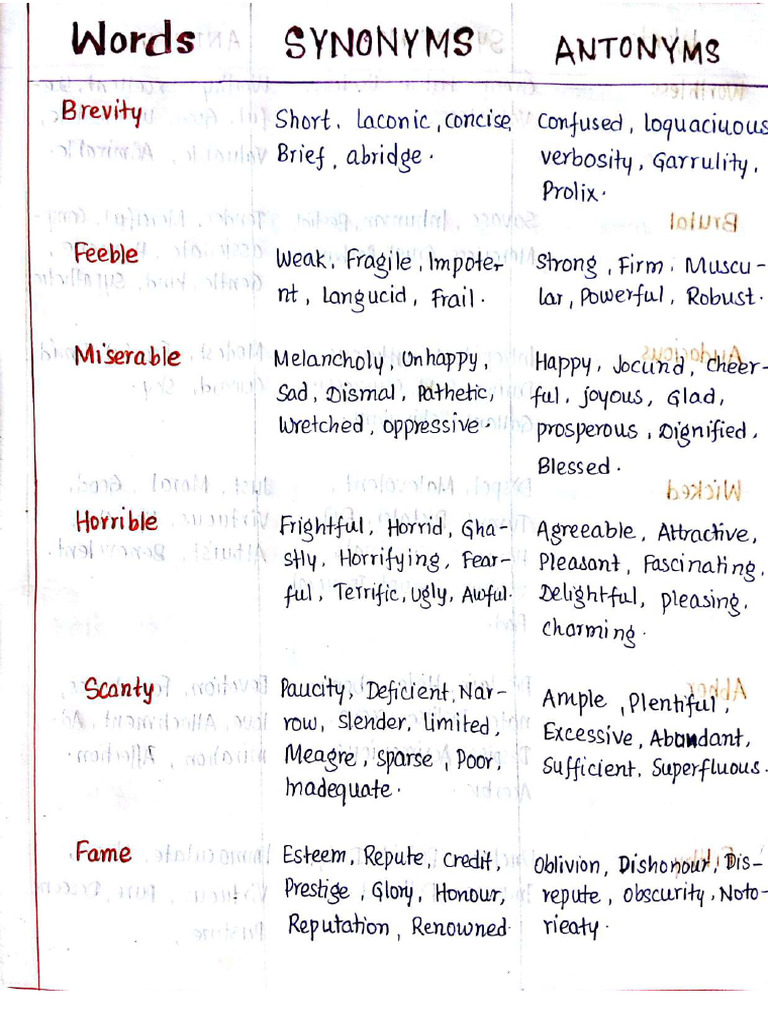 Words SYNONYMS ANTONYMS
Brevity
Short, laconic, concise,
Brief, abridge.
Confused, loquaciuous
verbosity, Garrulity,
Prolix.
Feeble
Weak, Fragile, Impote-
nt, Langucid, Frail.
Strong, Firm, Muscu-
lar, Powerful, Robust.
Miserable
Melancholy, Unhappy,
Sad, Dismal, Pathetic,
Wretched, oppressive.
Happy, Jocund, cheer-
ful, joyous, Glad,
prosperous, Dignified,
Blessed.
Horrible
Frightful, Horrid, Gha-
stly, Horrifying, Fear-
ful, Terrific, Ugly, Awful.
Agreeable, Attractive,
Pleasant, Fascinating,
Delightful, pleasing,
charming.
Scanty
Paucity, Deficient, Nar-
row, Slender, limited,
Meagre, sparse, Poor,
Inadequate.
Ample, Plentiful,
Excessive, Abundant,
Sufficient, Superfluous.
Fame
Esteem, Repute, credit,
Prestige, Glory, Honour,
Reputation, Renowned.
Oblivion, Dishonour, Dis-
repute, obscurity, Noto-
rieaty.